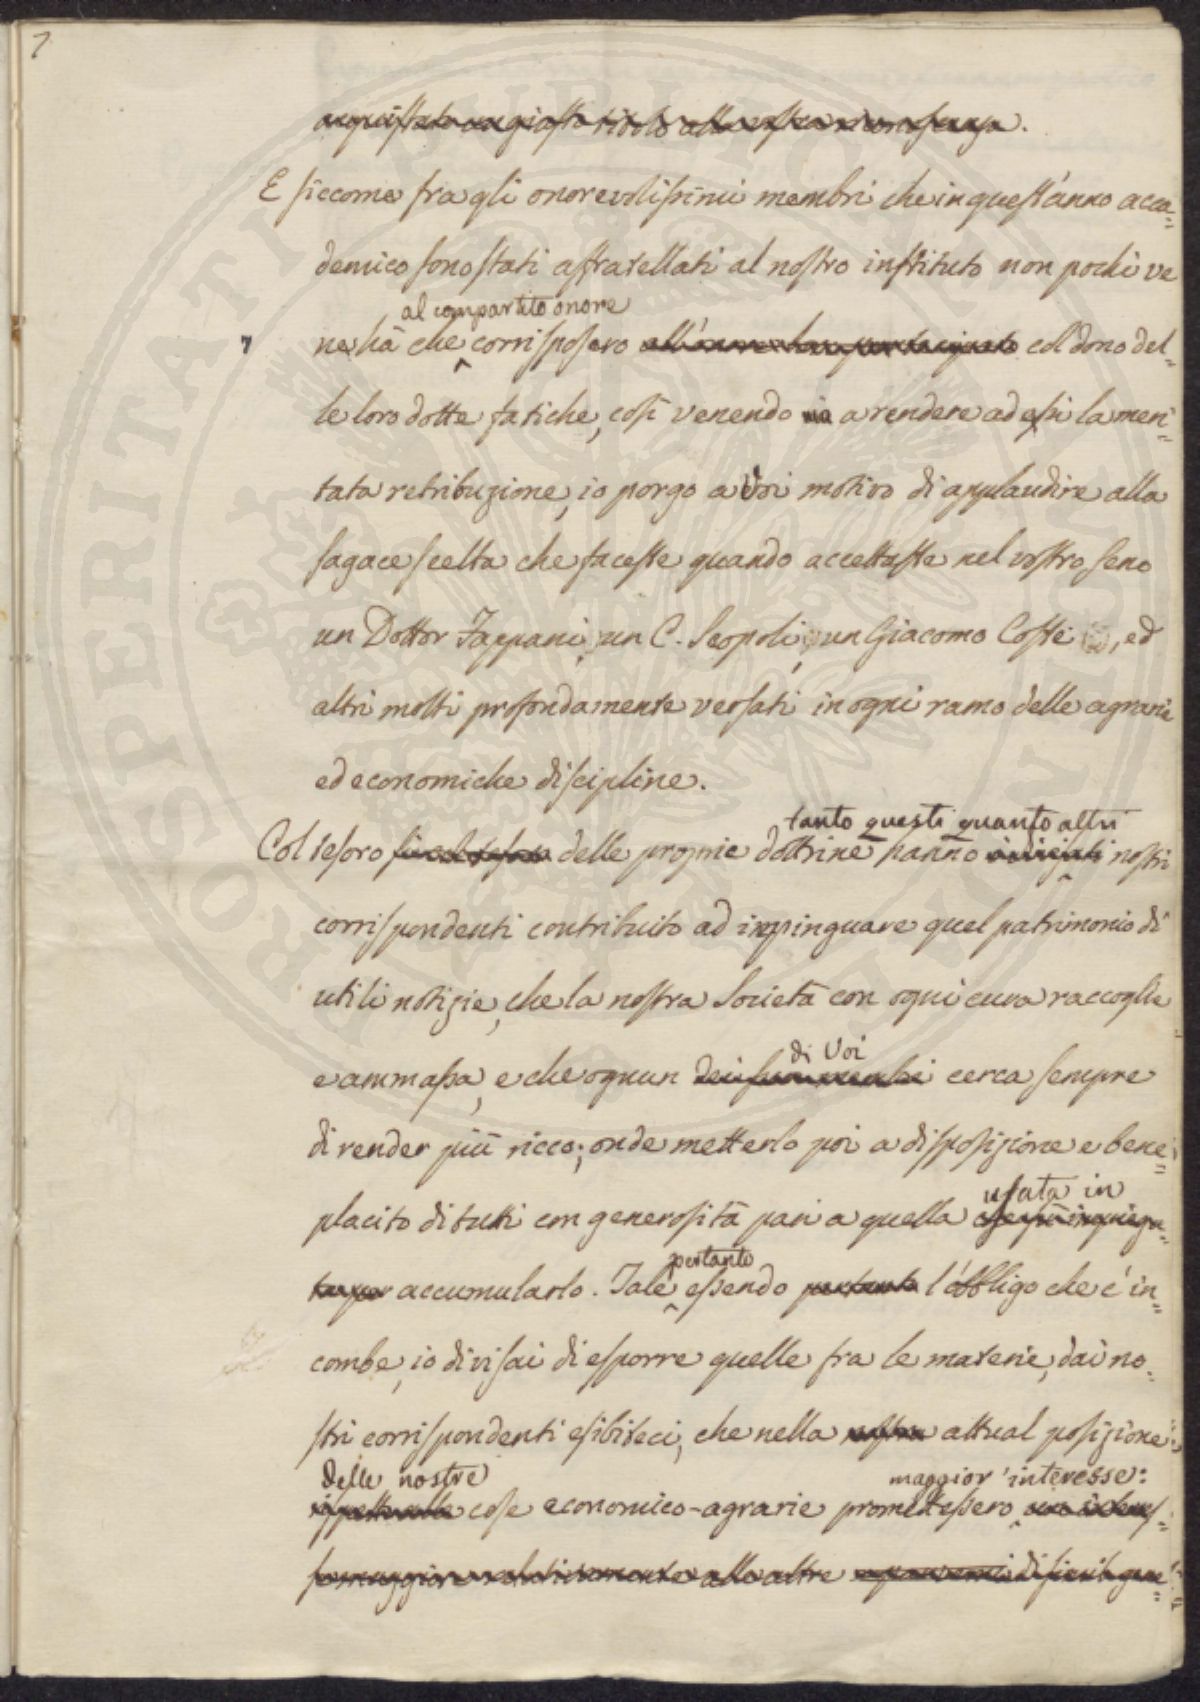 7
acquistato un giusto titolo alla vostra riconoscenza.
E siccome fra gli onorevolissimi membri che in quest'anno acca=
demico sono stati affratellati al nostro instituto non pochi ve
al compartito onore
ne hà che corrisposero col dono del=
le loro dotte fatiche, così venendo a rendere ad essi la meri=
tata retribuzione, io porgo a Voi motivo di applaudire alla
sagace scelta che faceste quando accettaste nel vostro seno
un Dottor Tappani, un C. Scopoli, un Giacomo Coste, ed
altri molti profondamente versati in ogni ramo delle agrarie
ed economiche discipline.
tanto questi quanto altri
Col tesoro delle proprie dottrine hanno nostri
corrispondenti contribuito ad impinguare quel patrimonio di
utili notizie, che la nostra Società con ogni cura raccoglie
di Voi
e ammassa, e che ognun dei suoi membri cerca sempre
di render più ricco; onde metterlo poi a disposizione e bene=
placito di tutti con generosità pari a quella
usata in
accumularlo. Tale essendo pertanto l'obbligo che c'in=
pertanto
combe, io divisai di esporre quelle fra le materie, dai no=
stri corrispondenti esibiteci, che nella nostra attual posizione
delle nostre
maggior interesse:
rispetto alle cose economico-agrarie promettessero un interes=
se maggiore relativamente alle altre di simil gene=